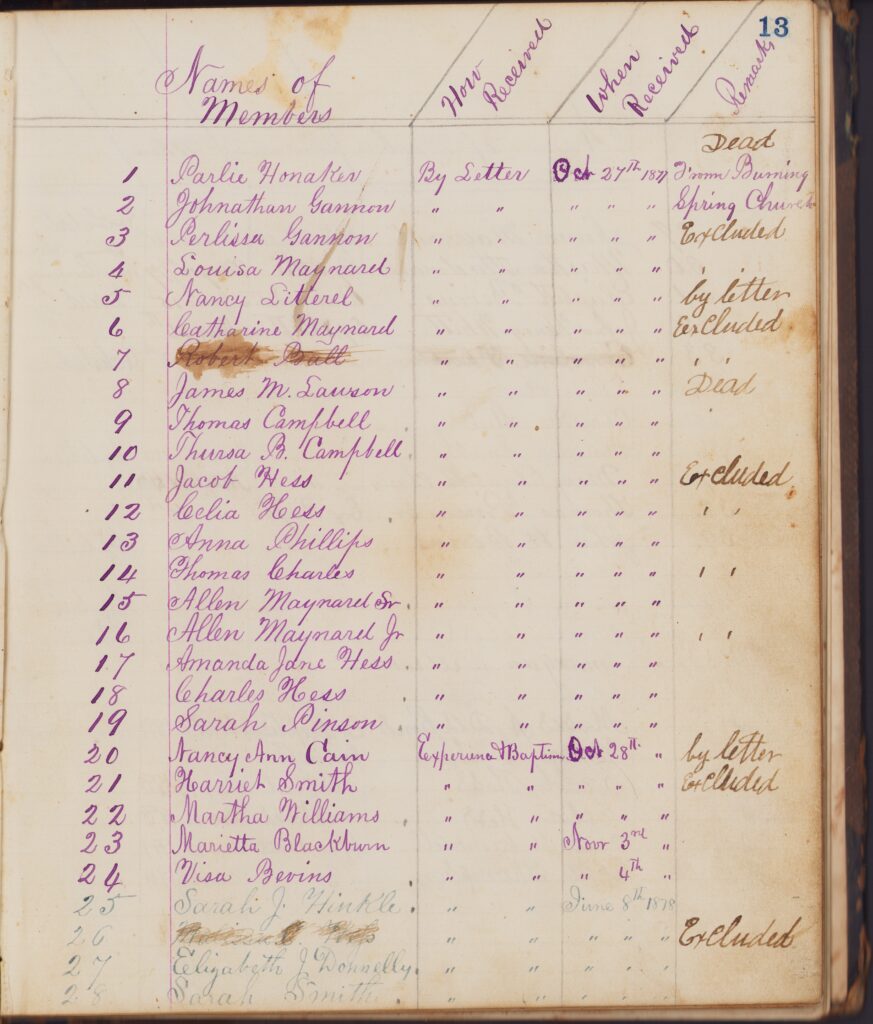 13
Names of Members How Received When Received Remarks
Dead
1 Parlie Honaker By Letter Oct 27th 1877 From Burning
2 Johnathan Gannon " " " " " Spring Church
3 Perlissa Gannon " " " " " Excluded
4 Louisa Maynard " " " " " " "
5 Nancy Litterel " " " " " by letter
6 Catharine Maynard " " " " " Excluded
7 Robert Ball " " " " " " "
8 James M. Lawson " " " " " Dead
9 Thomas Campbell " " " " "
10 Thursa B. Campbell " " " " "
11 Jacob Hess " " " " " Excluded
12 Celia Hess " " " " " " "
13 Anna Phillips " " " " "
14 Thomas Charles " " " " " " "
15 Allen Maynard Sr " " " " "
16 Allen Maynard Jr " " " " " " "
17 Amanda Jane Hess " " " " "
18 Charles Hess " " " " "
19 Sarah Pinson " " " " "
20 Nancy Ann Cain Experience & Baptism Oct 28th " by letter
21 Harriet Smith " " " " " Excluded
22 Martha Williams " " " " "
23 Marietta Blackburn " " Nov 3rd "
24 Visa Bevins " " " 4th "
25 Sarah J. Hinkle " " June 8th 1878
26 " " " " " Excluded
27 Elizabeth J Donnelly " " " " "
28 Sarah Smith " " " " "